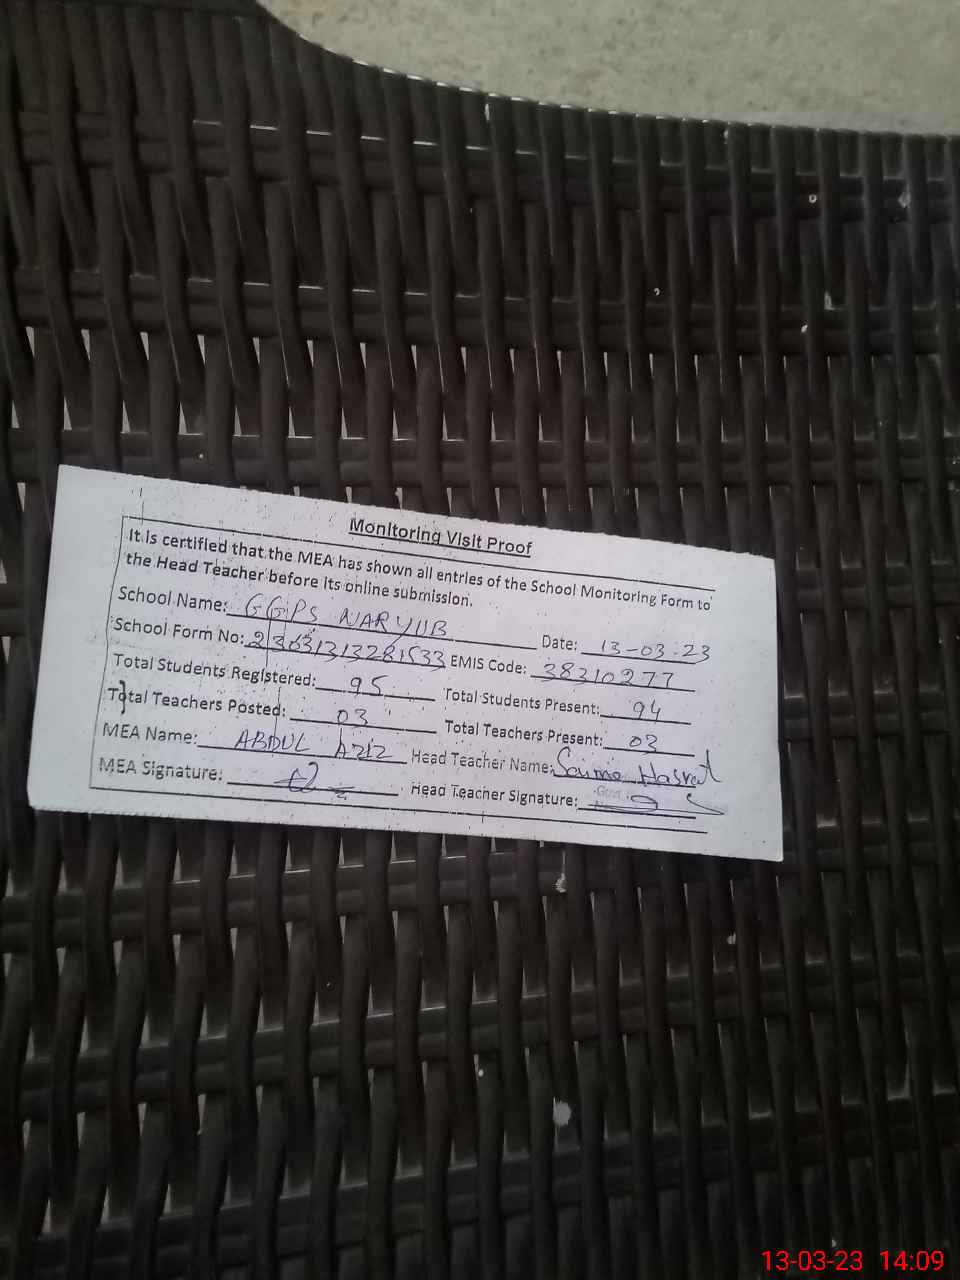 Monitoring Visit Proof
It is certified that the MEA has shown all entries of the School Monitoring Form to
the Head Teacher before its online submission.
School Name: GGPS NARYUB Date: 13-03-23
School Form No: 23631313281533 EMIS Code: 38310277
Total Students Registered: 95 Total Students Present: 94
Total Teachers Posted: 03 Total Teachers Present: 03
MEA Name: ABDUL AZIZ Head Teacher Name: Saima Hasrat
MEA Signature: Head Teacher Signature:
13-03-23 14:09